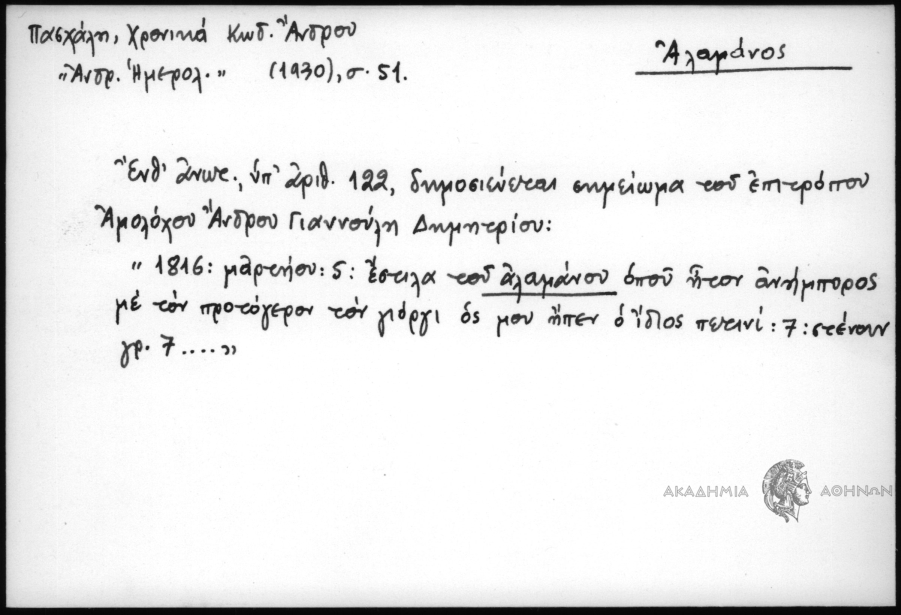 Πασχάλη, Χρονικά Κωδ. Ἄνδρου
„Ἀνδρ. Ἡμερολ.” (1930), σ. 51.
Ἀλαμάνος
Ἔνθ' ἄνωτ., ὑπ' ἀριθ. 122, δημοσιεύεται σημείωμα τοῦ ἐπιτρόπου
Ἀμολόχου Ἄνδρου Γιαννούλη Δημητρίου:
„ 1816: μαρτήου: 5: ἔστιλα τοῦ ἀλαμάνου ὁποῦ ἦτον ἀνήμπορος
μέ τόν προτόγερον τόν γιόργι ὁς μου ἤπεν ὁ ἴδιος πετινί: 7: στένουν
γρ. 7 ....”
ΑΚΑΔΗΜΙΑ ΑΘΗΝΩΝ